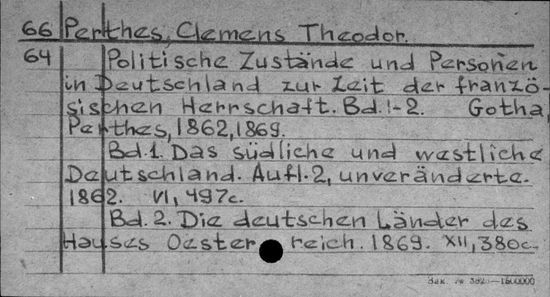 66 Perthes, Clemens Theodor.
64 Politische Zustände und Personen
in Deutschland zur Zeit der franzö-
sischen Herrschaft. Bd. 1-2. Gotha,
Perthes, 1862, 1869.
Bd. 1. Das südliche und westliche
Deutschland. Aufl. 2, unveränderte.
1862. VI, 497c.
Bd. 2. Die deutschen Länder des
Hauses Oester reich. 1869. XII, 380c.